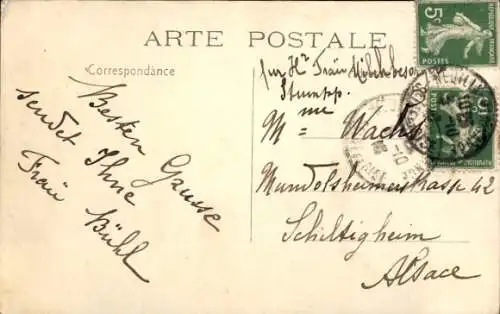 ARTE POSTALE
Correspondance
Besten Gausse
sendet Ihne
Frau Bühl
für Hr Frau
Stumpp.
Mme Wacha
Mundolsheimerstrasse 42
Schiltigheim
Alsace
5c
POSTES
5c